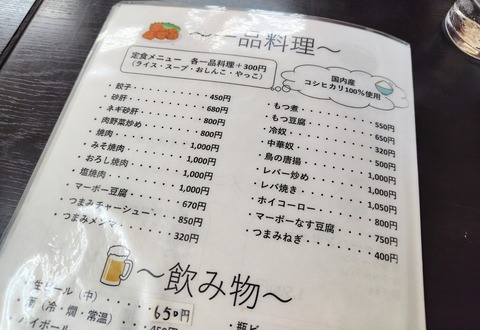 ～一品料理～
定食メニュー 各一品料理＋300円
（ライス・スープ・おしんこ・やっこ）
国内産
コシヒカリ100％使用
餃子・・・・・・・・450円
砂肝・・・・・・・・680円
ネギ砂肝・・・・・・800円
肉野菜炒め・・・・・800円
焼肉・・・・・・・1,000円
みそ焼肉・・・・・1,000円
おろし焼肉・・・・1,000円
塩焼肉・・・・・・1,000円
マーボー豆腐・・・・670円
つまみチャーシュー・850円
つまみメンマ・・・・320円
もつ煮・・・・・・・550円
もつ豆腐・・・・・・650円
冷奴・・・・・・・・320円
中華奴・・・・・・・500円
鳥の唐揚・・・・・1,000円
レバー炒め・・・・1,000円
レバ焼き・・・・・1,050円
ホイコーロー・・・・800円
マーボーなす豆腐・・750円
つまみねぎ・・・・・400円
～飲み物～
生ビール（中）・・・・650円
（冷・燗・常温）
イボール
・瓶ビ